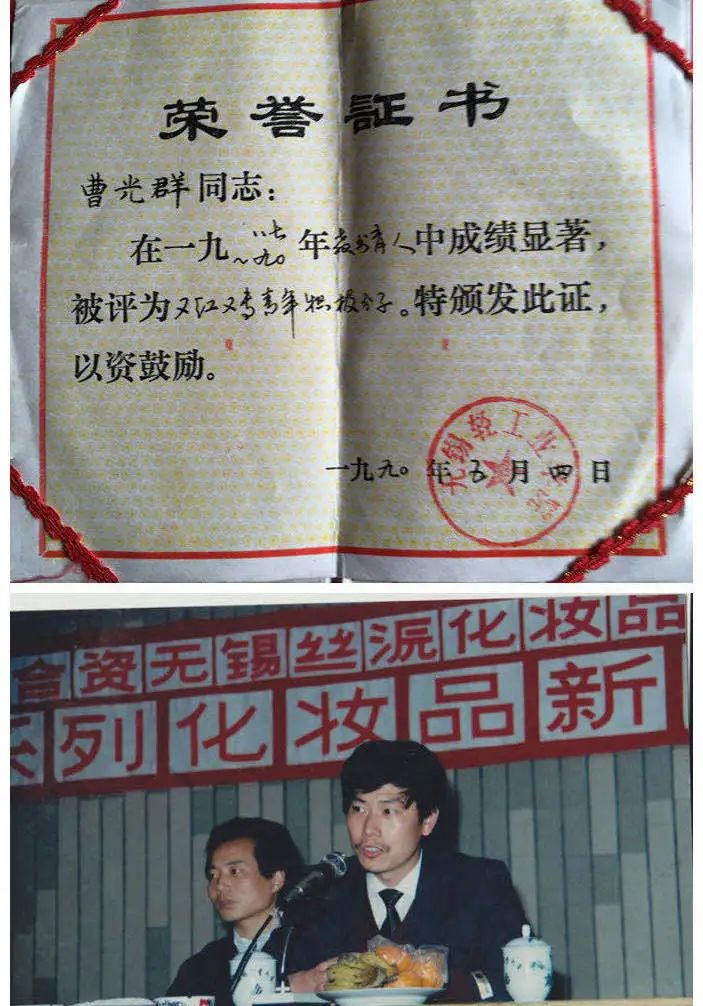 荣誉証书
曹光群同志：
在一九八七~九〇年教书育人中成绩显著，
被评为又红又专青年积极分子。特颁发此证，
以资鼓励。
一九九〇年五月四日
无锡轻工业学院
合资无锡丝泥化妆品
系列化妆品新